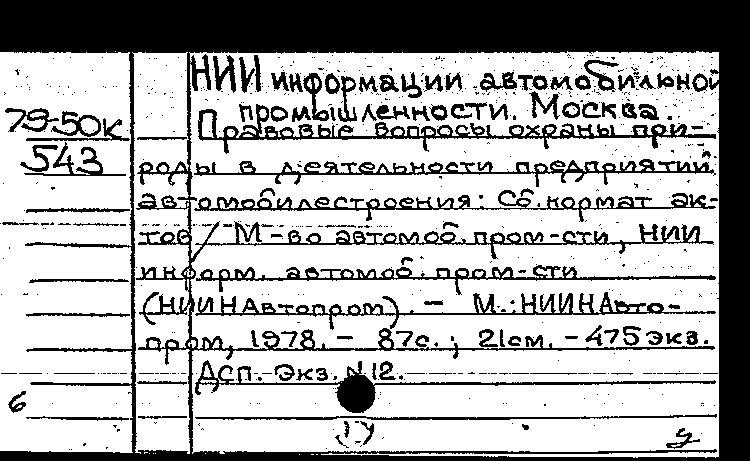 НИИ информации автомобильной
промышленности. Москва.
79-50к
543
Правовые вопросы охраны при-
роды в деятельности предприятий
автомобилестроения: Сб. нормат ак-
тов / М-во автомоб. пром-сти, НИИ
информ. автомоб. пром-сти
(НИИНАвтопром). - М.: НИИНАвто-
пром, 1978. - 87с.; 21см. - 475 экз.
Дсп. Экз. N 12.
6